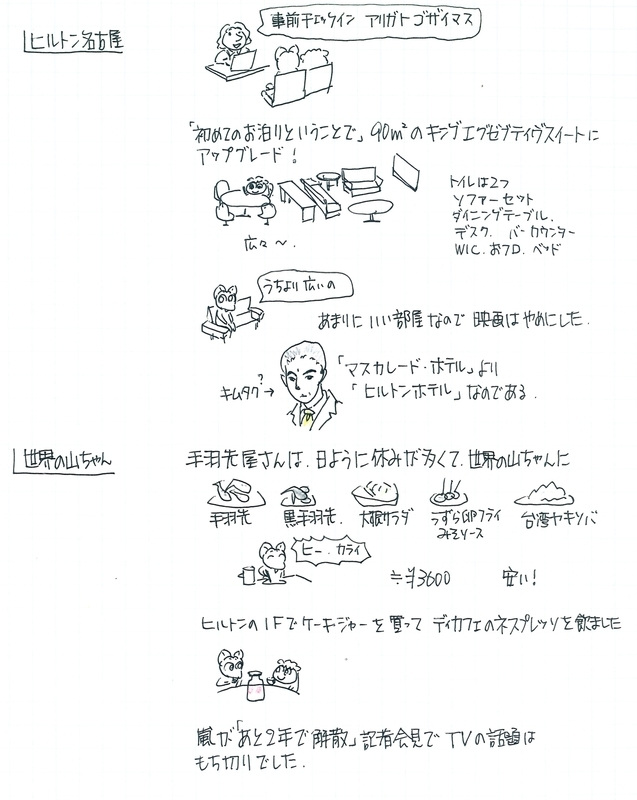 ヒルトン名古屋
事前チェックイン アリガトゴザイマス
「初めてのお泊りということで」90m²のキングエグゼグティヴスイートに
アップグレード!
トイレは2つ
ソファーセット
ダイニングテーブル、
デスク. バーカウンター
WIC. おフロ. ベッド
広々〜.
うちより広いの
あまりにいい部屋なので 映画はやめにした.
キムタク?→
「マスカレード・ホテル」より
「ヒルトンホテル」なのである.
世界の山ちゃん
手羽先屋さんは、日ように休みが多くて、世界の山ちゃんに
手羽先
黒手羽先.
大根サラダ
うずら卵フライ
みそソース
台湾ヤキソバ
ヒー、カライ
≒¥3600 安い!
ヒルトンの1Fでケーキジャーを買って ディカフェのネスプレッソを飲ました
嵐が「あと2年で解散」記者会見で TVの話題は
もち切りでした.